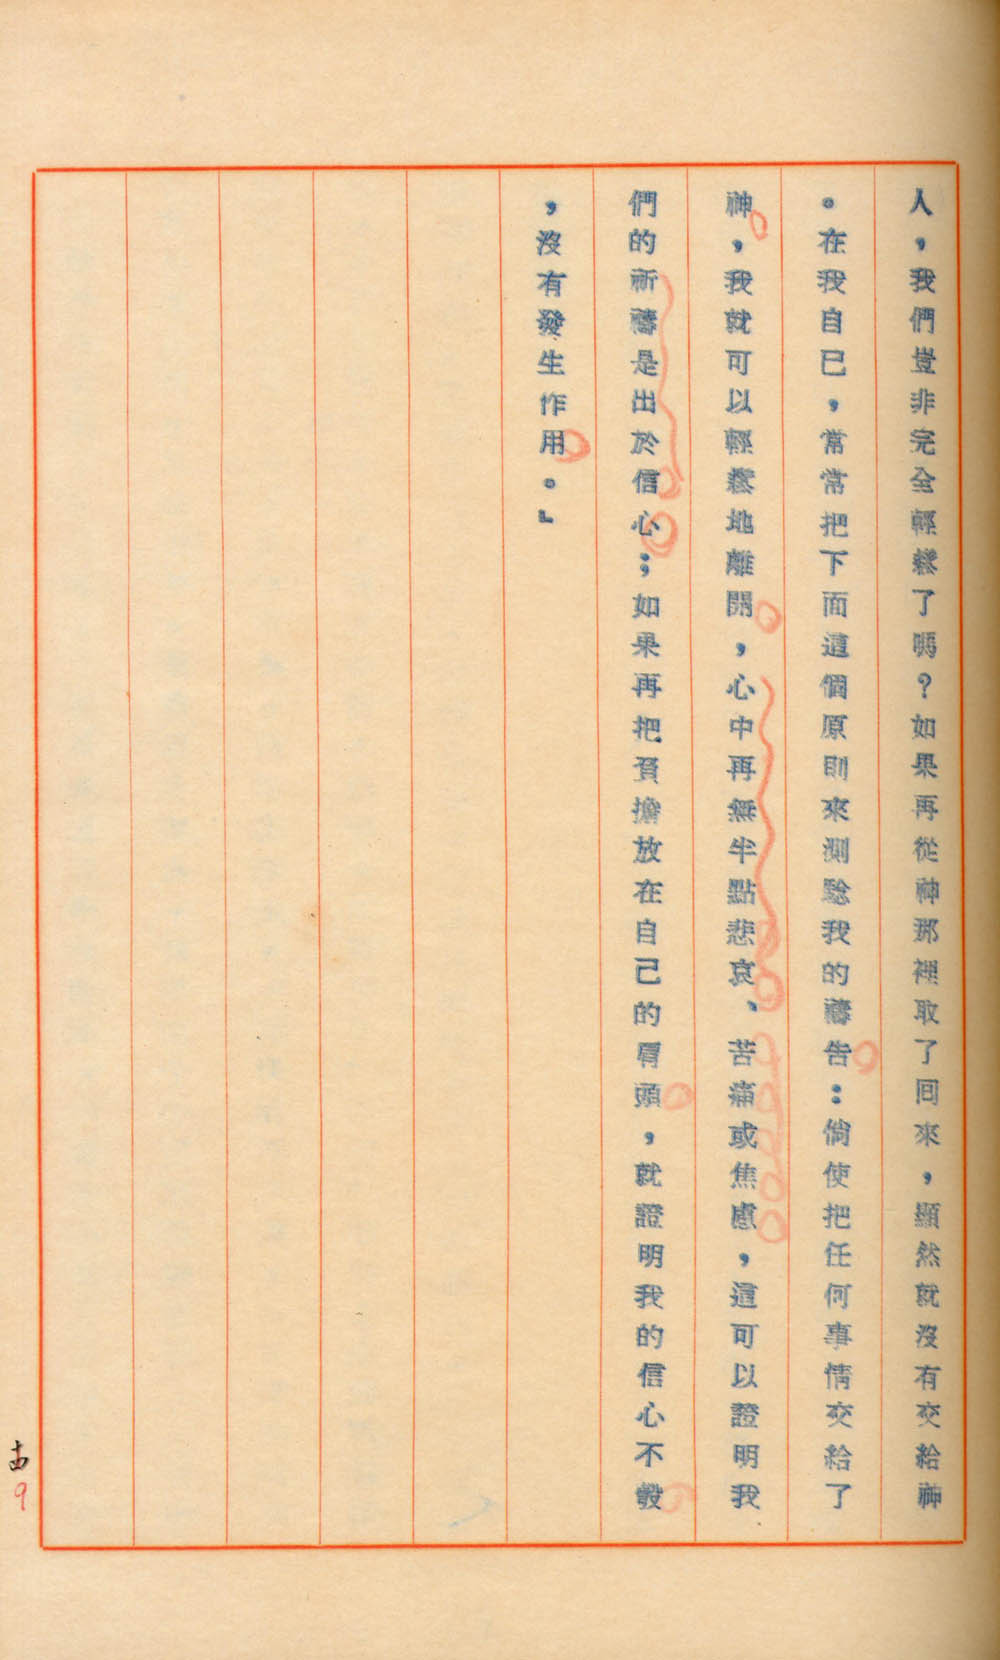 人，我們豈非完全輕鬆了嗎？如果再從神那裡取了回來，顯然就沒有交給神
。在我自己，常常把下面這個原則來測驗我的禱告：倘使把任何事情交給了
神，我就可以輕鬆地離開，心中再無半點悲哀、苦痛或焦慮，這可以證明我
們的祈禱是出於信心；如果再把負擔放在自己的肩頭，就證明我的信心不彀
，沒有發生作用。』
9